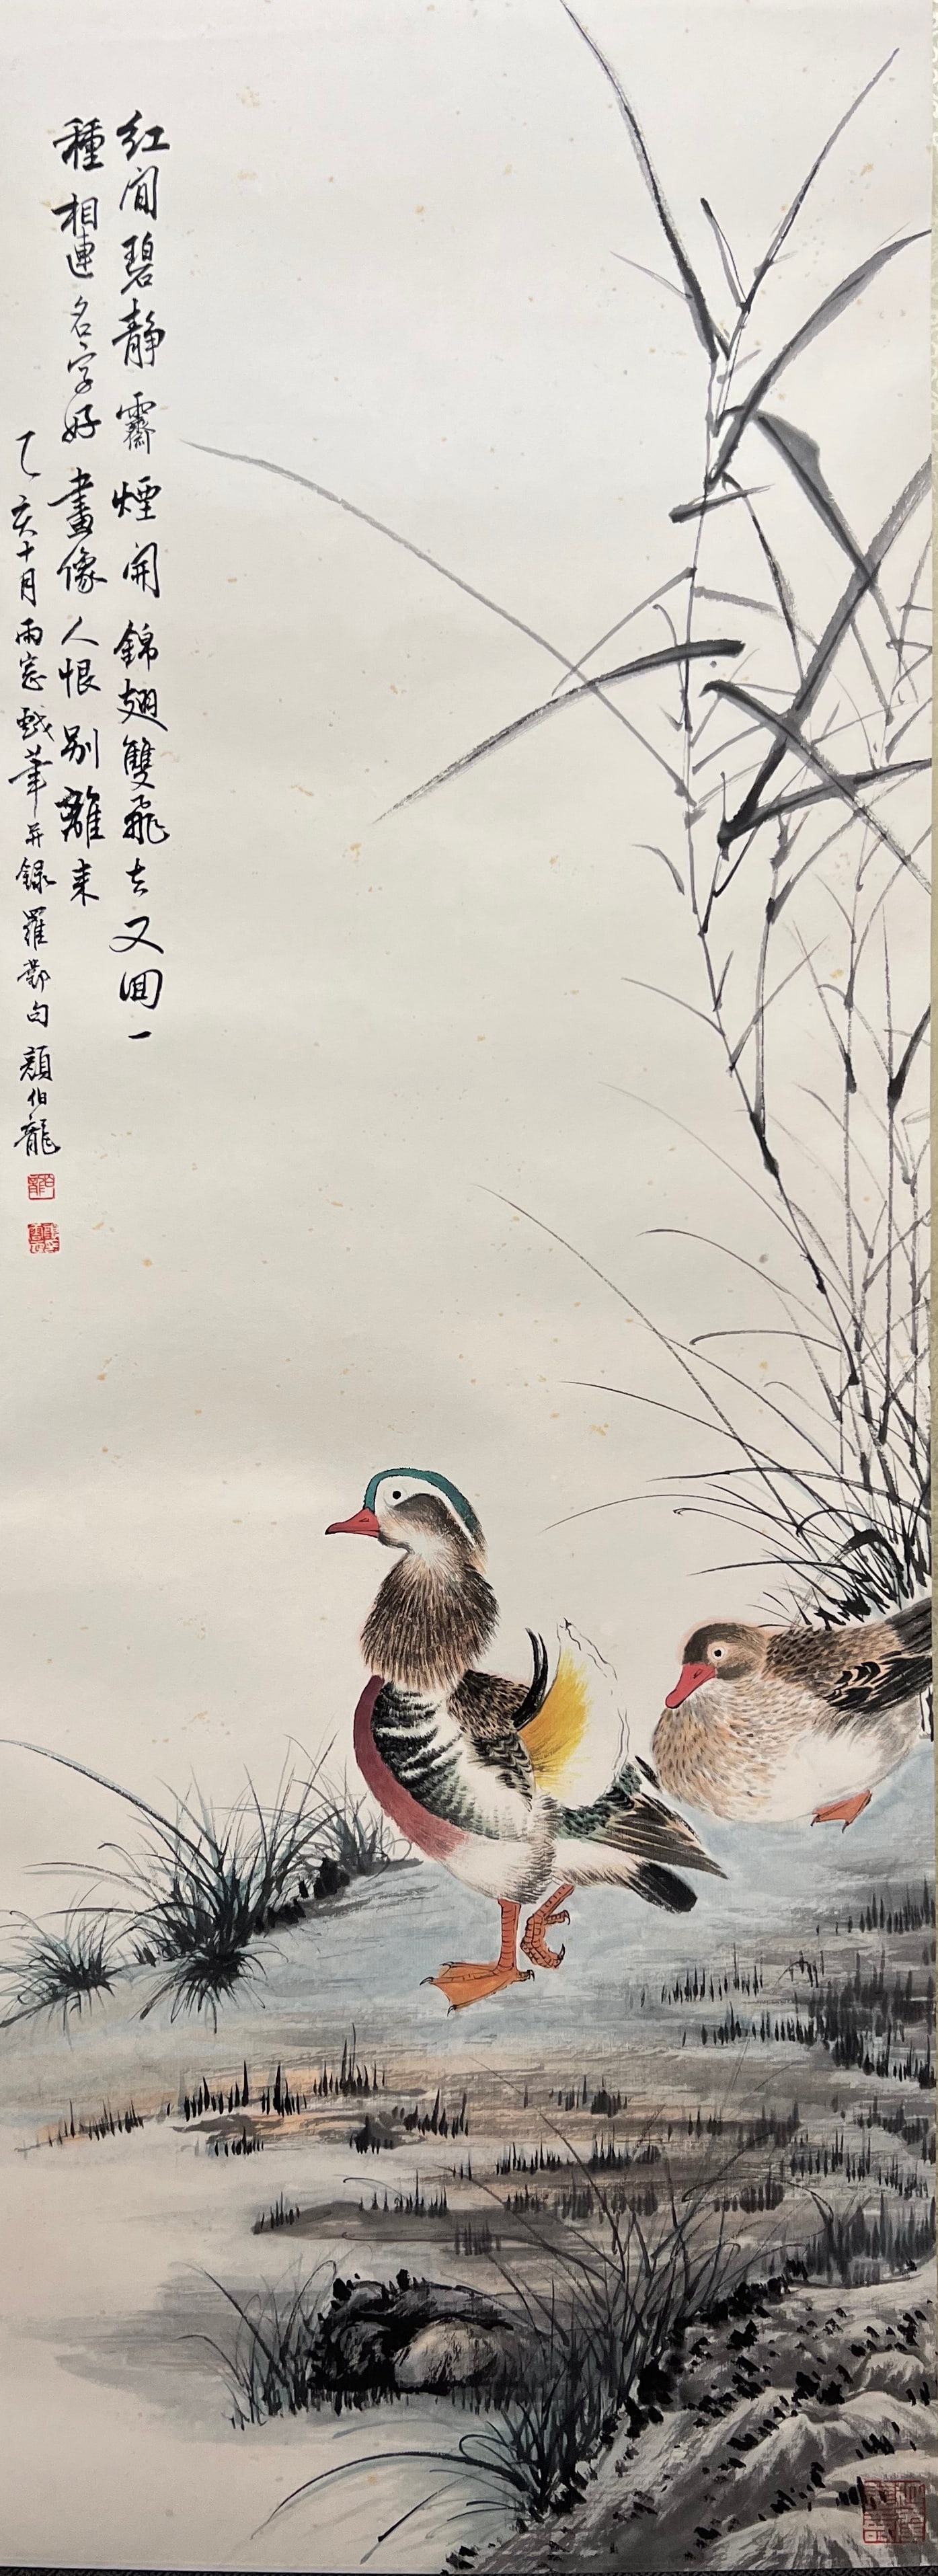 紅閒碧靜霽煙開錦翅雙飛去又回一
種相連名字好畫像人恨別離来
乙亥十月雨窓戲筆并録羅鄴句顏伯龍